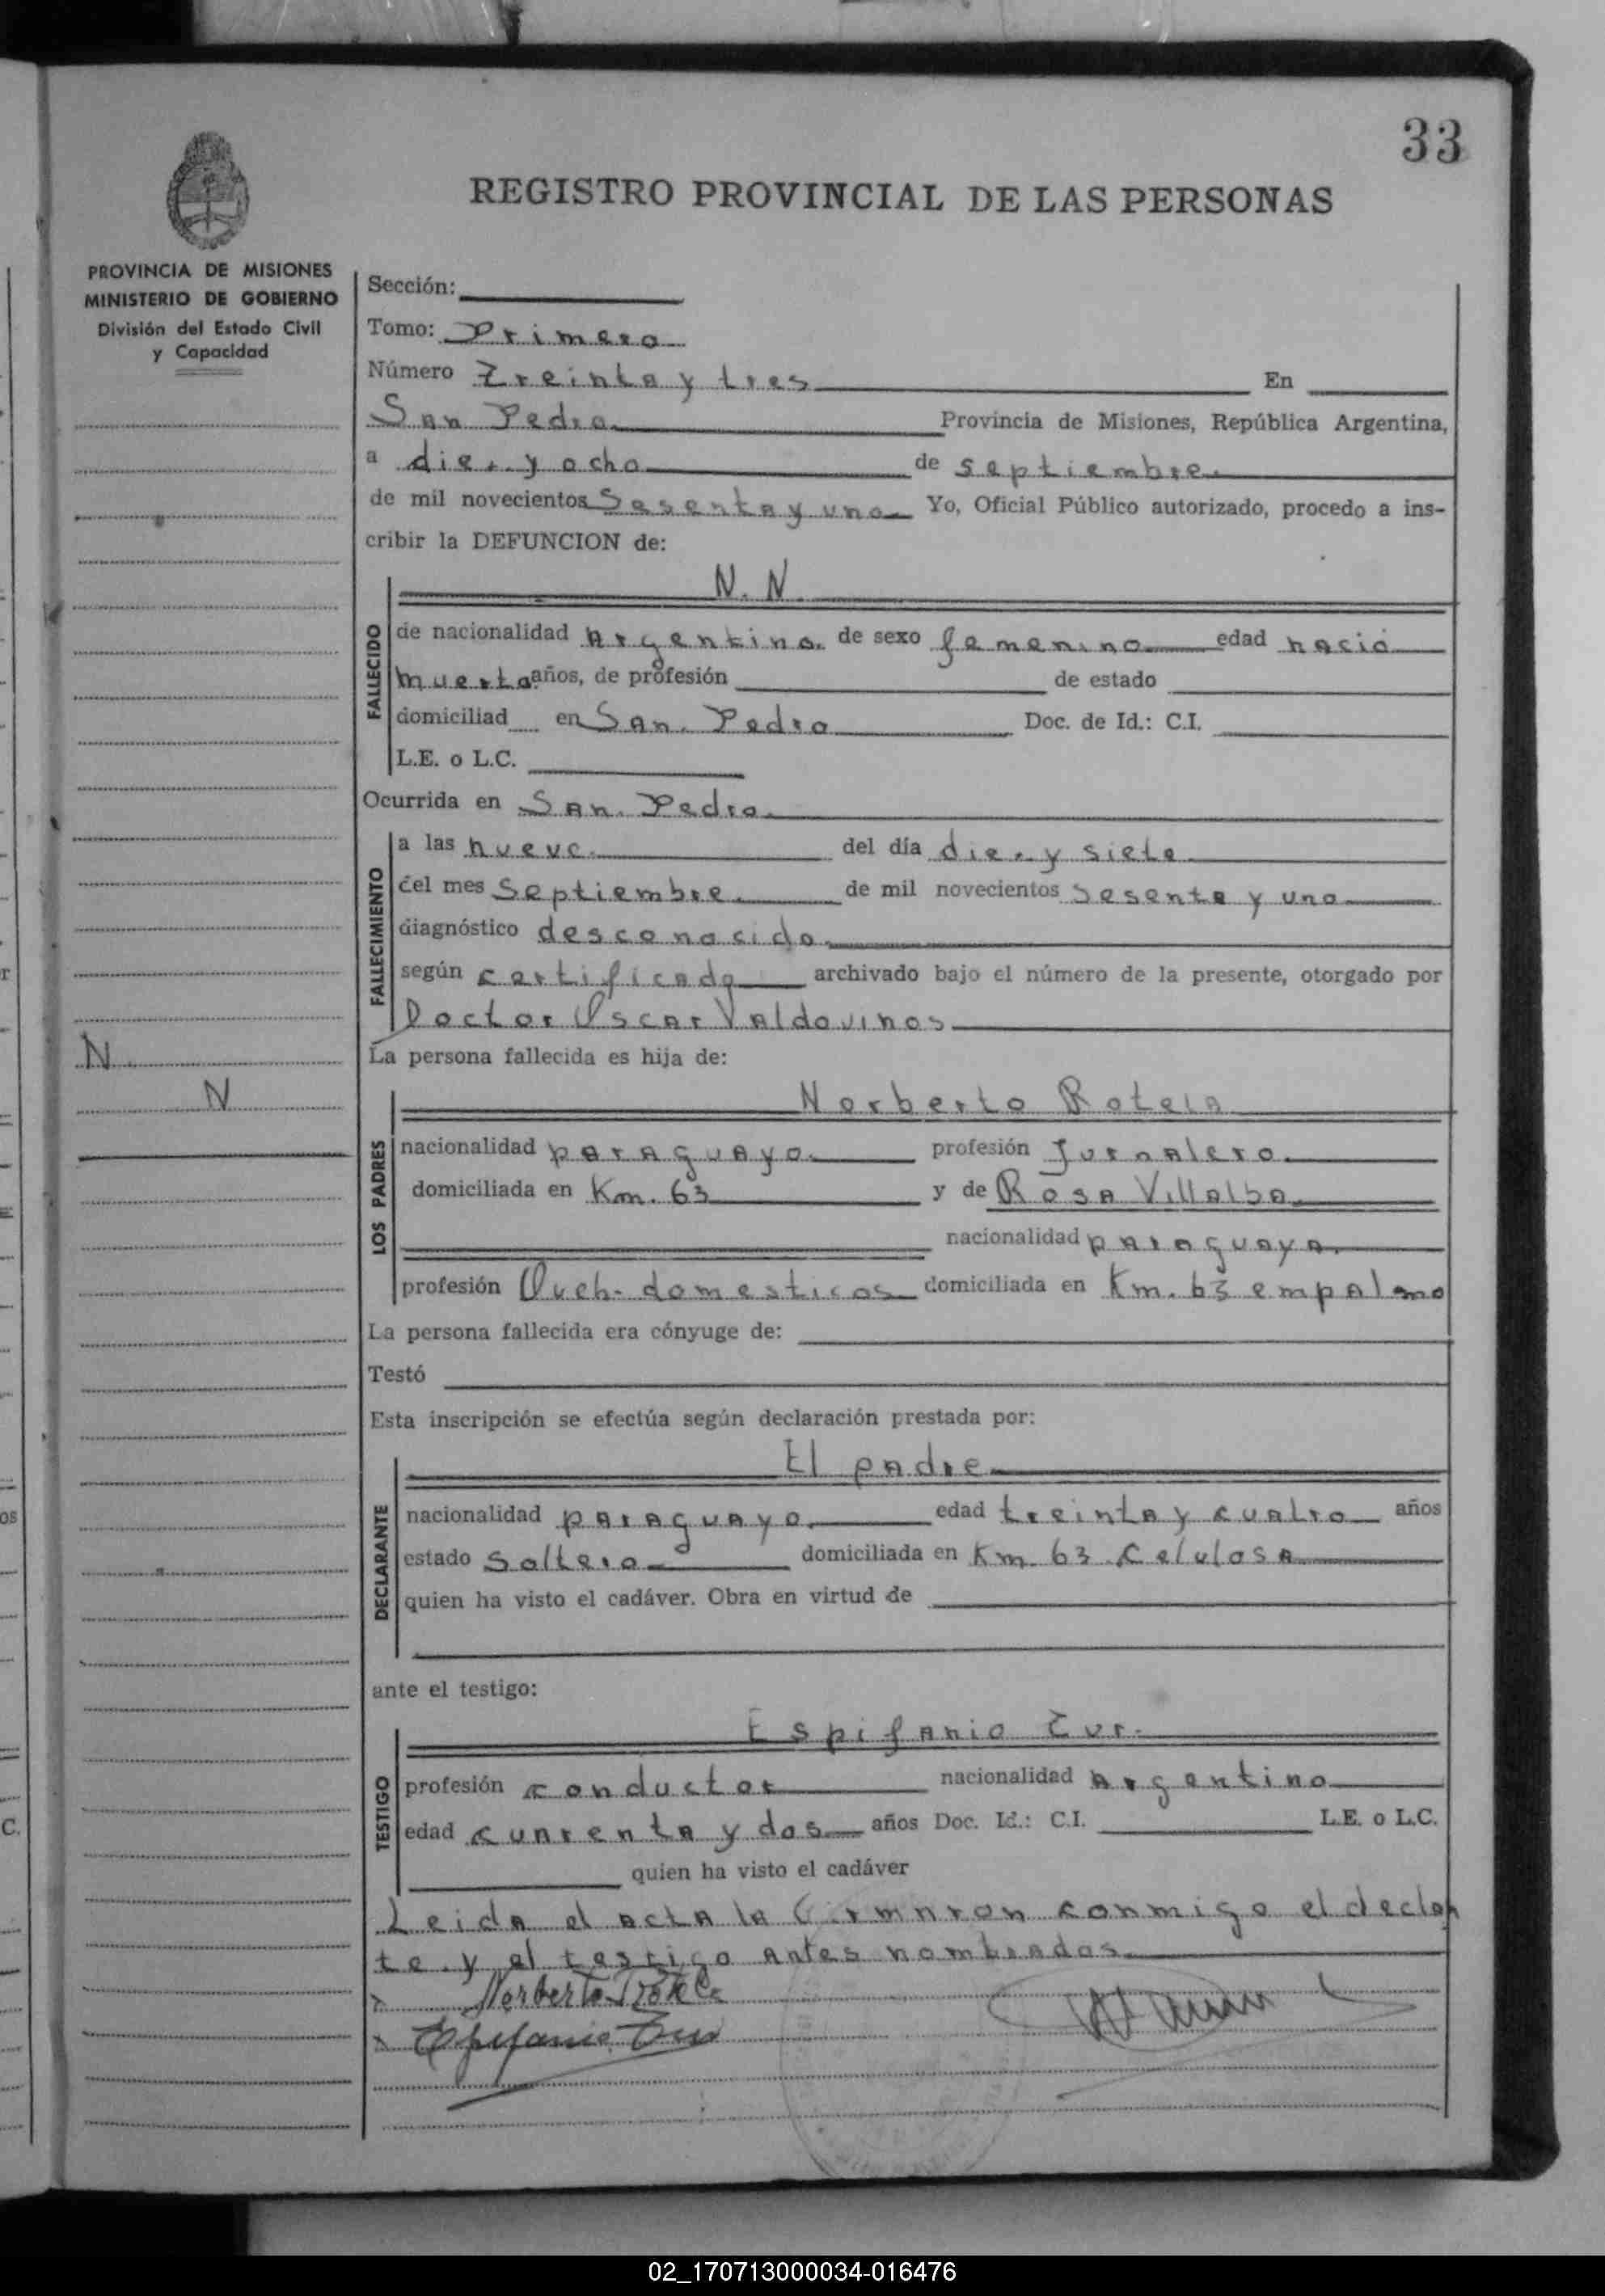 33
REGISTRO PROVINCIAL DE LAS PERSONAS
PROVINCIA DE MISIONES
MINISTERIO DE GOBIERNO
División del Estado Civil
y Capacidad
Sección:
Tomo: Primero
Número Treinta y tres En
San Pedro Provincia de Misiones, República Argentina,
a diez y ocho de septiembre
de mil novecientos Sesenta y uno Yo, Oficial Público autorizado, procedo a ins-
cribir la DEFUNCION de:
N. N.
FALLECIDO
de nacionalidad Argentina de sexo femenino edad nació
muerta años, de profesión de estado
domiciliad en San Pedro Doc. de Id.: C.I.
L.E. o L.C.
Ocurrida en San Pedro
FALLECIMIENTO
a las nueve del día diez y siete
del mes Septiembre de mil novecientos sesenta y uno
diagnóstico desconocido
según certificado archivado bajo el número de la presente, otorgado por
Doctor Oscar Valdovinos
N.
N
La persona fallecida es hija de:
Norberto Rotela
LOS PADRES
nacionalidad paraguayo profesión Jornalero
domiciliada en Km. 63 y de Rosa Villalba
nacionalidad paraguaya
profesión Queh. domesticos domiciliada en Km. 63 empalme
La persona fallecida era cónyuge de:
Testó
Esta inscripción se efectúa según declaración prestada por:
El padre
DECLARANTE
nacionalidad paraguayo edad treinta y cuatro años
estado Soltero domiciliada en Km 63 Celulosa
quien ha visto el cadáver. Obra en virtud de
ante el testigo:
Espifanio Zur.
TESTIGO
profesión conductor nacionalidad Argentino
edad cuarenta y dos años Doc. Id.: C.I. L.E. o L.C.
quien ha visto el cadáver
Leida el acta la firmaron conmigo el declan
te y el testigo antes nombrados
Norberto Rotela
Epifanio
02_170713000034-016476